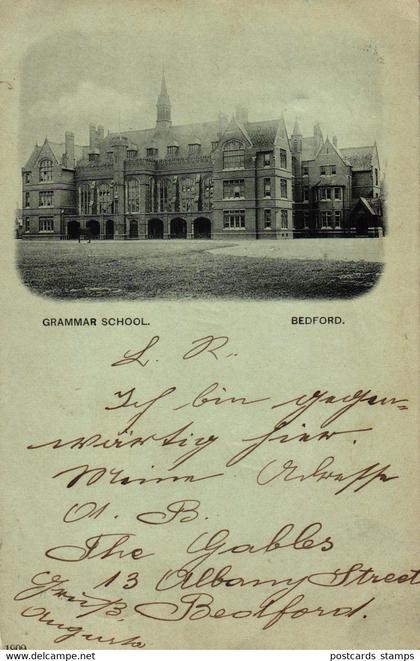 GRAMMAR SCHOOL. BEDFORD.
L. R.
Ich bin gegen-
wärtig hier.
Meine Adresse
A. B.
The Gables
13 Albany Street
Gruß. Bedford.
Augusta
1909
postcards stamps
www.delcampe.net / postcards stamps